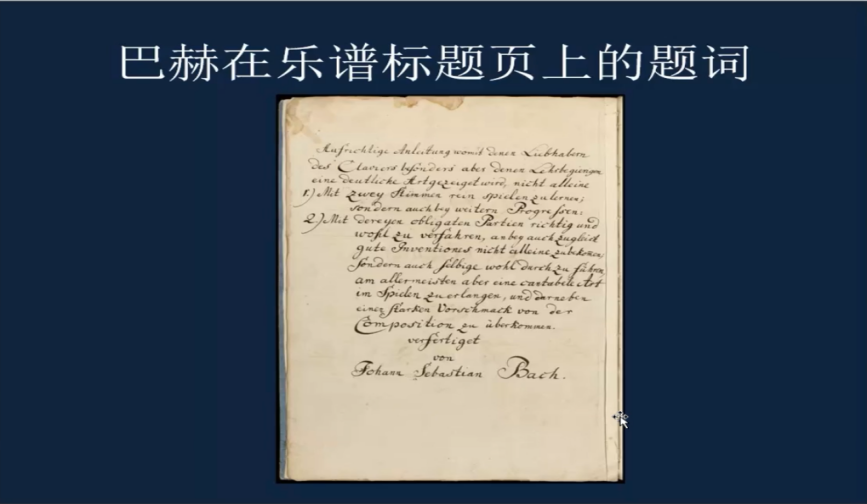 巴赫在乐谱标题页上的题词
Aufrichtige Anleitung womit denen Liebhabern
des Claviers besonders aber denen Lehrbegierigen
eine deutliche Art gezeiget wird, nicht alleine
1.) Mit zwey Stimmen rein spielen zu lernen;
sondern auch bey weitern Progressen:
2.) Mit dreyen obligaten Partien richtig und
wohl zu verfahren, anbey auch zugleich
gute Inventiones nicht alleine zu bekommen
sondern auch selbige wohl durch zu führen
am allermeisten aber eine cantabile Art
im Spielen zu erlangen, und darneben
einen starken Vorschmack von der
Composition zu überkommen.
verfertiget
von
Johann Sebastian Bach.